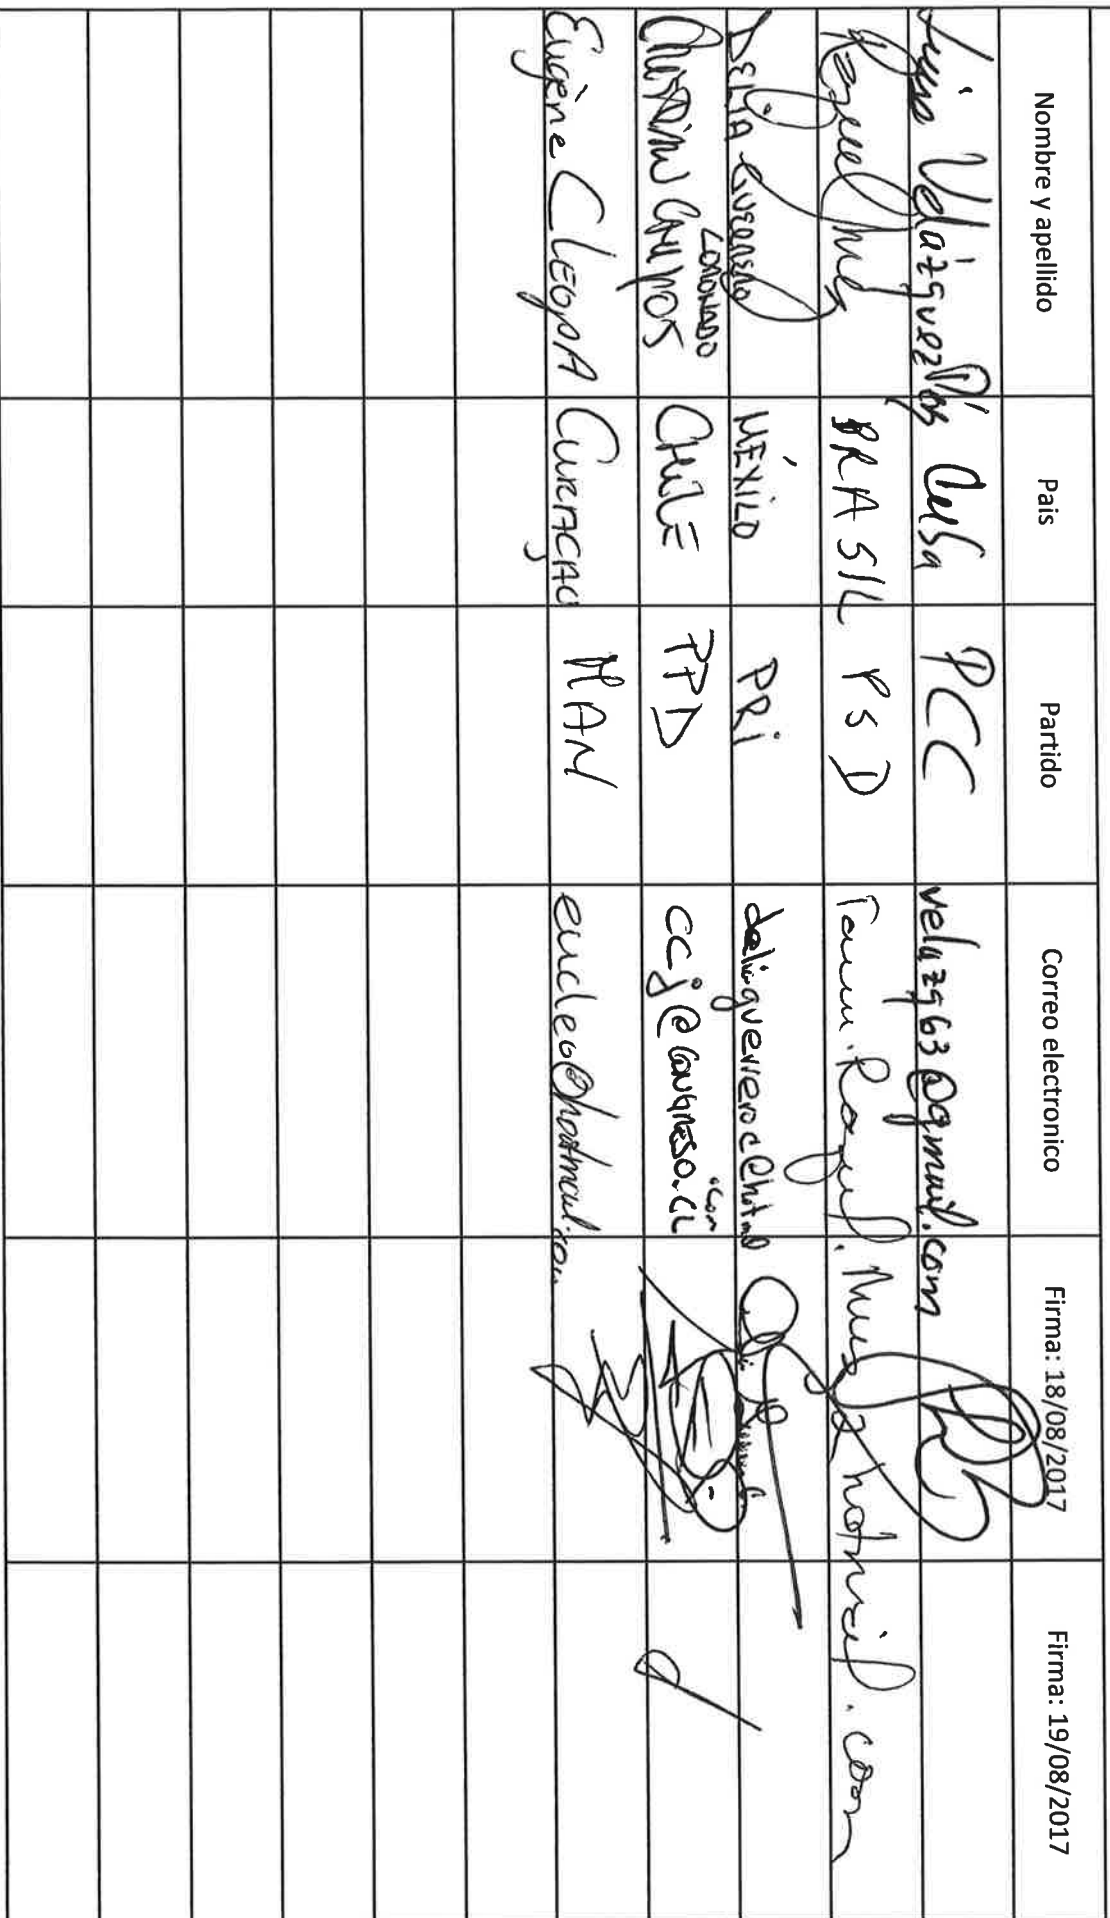 Nombre y apellido Pais Partido Correo electronico Firma: 18/08/2017 Firma: 19/08/2017
Velázquez Cuba PCC velazq63@gmail.com
BRASIL PSD hotmail.com
DELIA GUERRERO MÉXICO PRi deliaguerreroc@hotma
CORONADO
CAMPOS CHILE PPD ccj@congreso.cl
.com
Eugène CLEOPA CURAÇAO MAN eucleo@hotmail.com